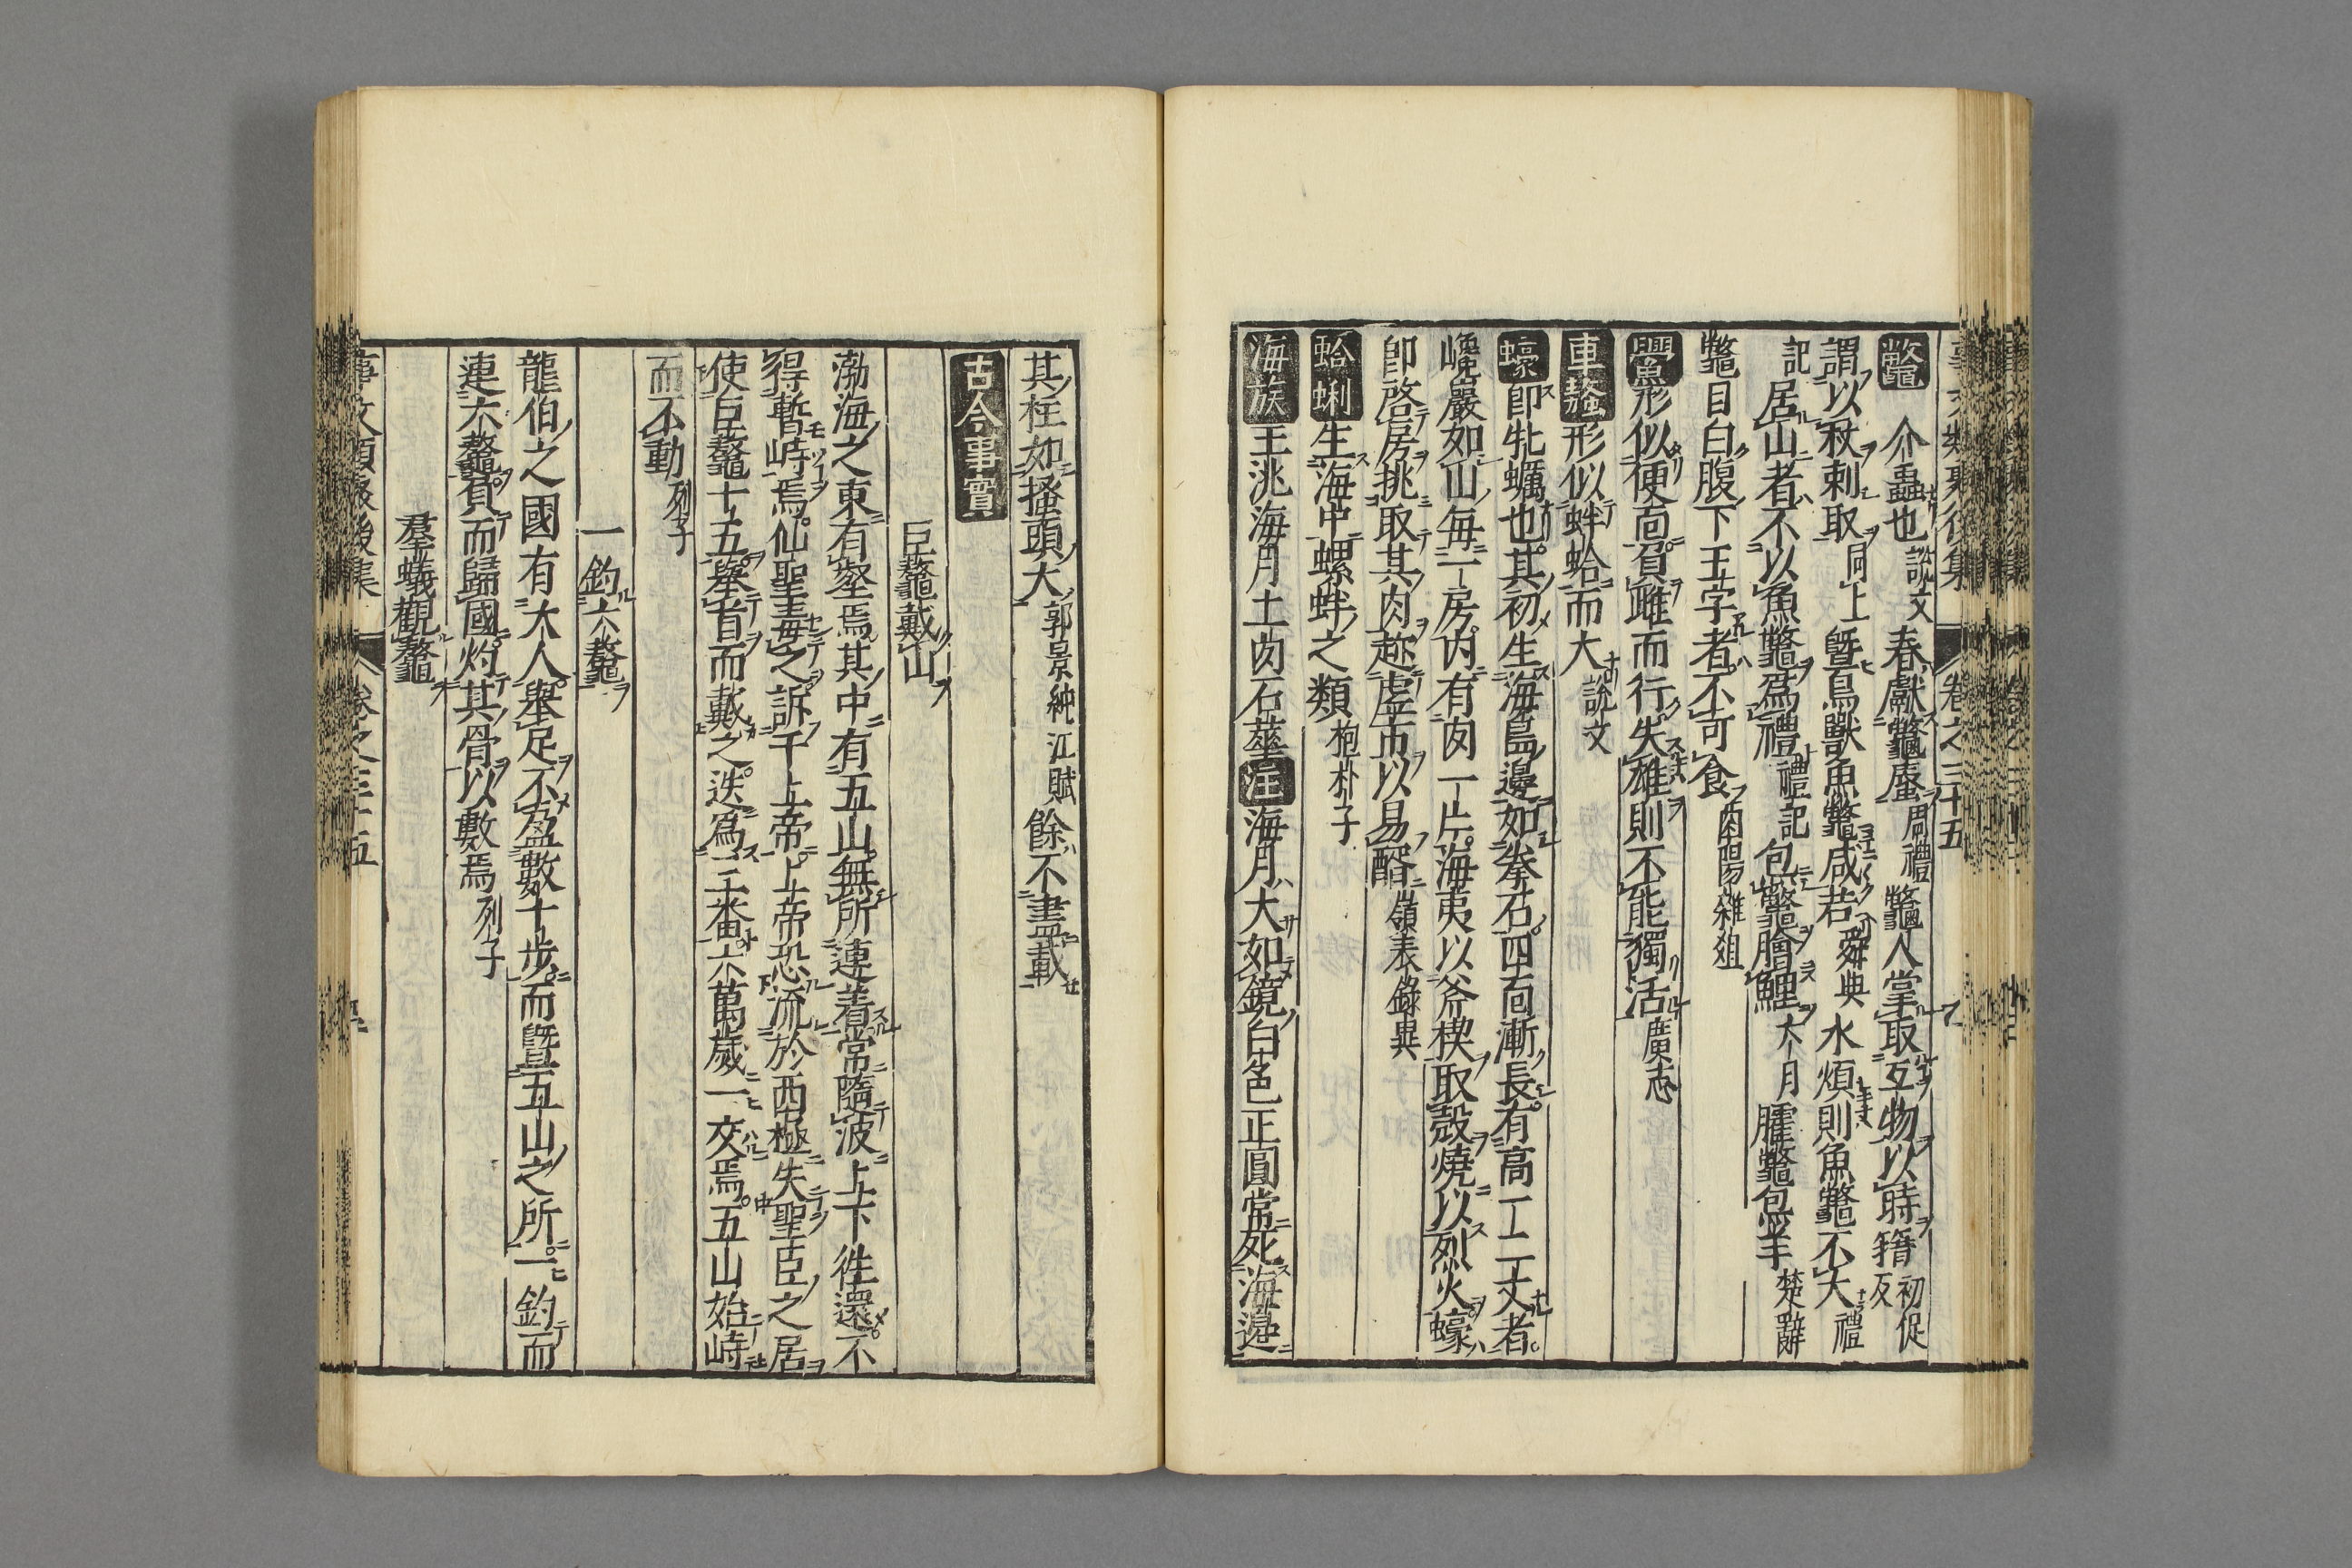 鼈 介蟲也 說文 春獻鼈蜃 周禮 鼈人掌取互物以時籍 初促反
謂以杖刺取 同上 曁鳥獸魚鼈咸若 舜典 水煩則魚鼈不大 禮
記 居山者不以魚鼈爲禮 禮記 包鼈膾鯉 六月 臑鼈包羊 楚辭
鼈目白腹下王字者不可食 酉陽雜俎
鱟 形似便面負雌而行失雄則不能獨活 廣志
車螯 形似蚌蛤而大 說文
蠔 卽牡蠣也其初生海島邊如拳石四面漸長有高一二丈者
巉巖如山每一房內有肉一片海夷以斧楔取殼燒以烈火蠔
卽啓房挑取其肉趁虛市以易醑 嶺表錄異
蛤蜊 生海中螺蚌之類 抱朴子
海族 王洮海月土肉石華 注 海月大如鏡白色正圓常死海邊
其柱如搔頭大 郭景純江賦 餘不盡載
古今事實
巨鼇戴山
渤海之東有壑焉其中有五山無所連着常隨波上下徃還不
得暫峙焉仙聖毒之訴于上帝上帝恐流於西極失聖臣之居
使巨鼇十五擧首而戴之迭爲三番六萬歲一交焉五山始峙
而不動 列子
一釣六鼇
龍伯之國有大人擧足不盈數十步而曁五山之所一釣而
連六鼇負而歸國灼其骨以數焉 列子
羣蟻觀鼇
事文類聚後集 卷之三十五